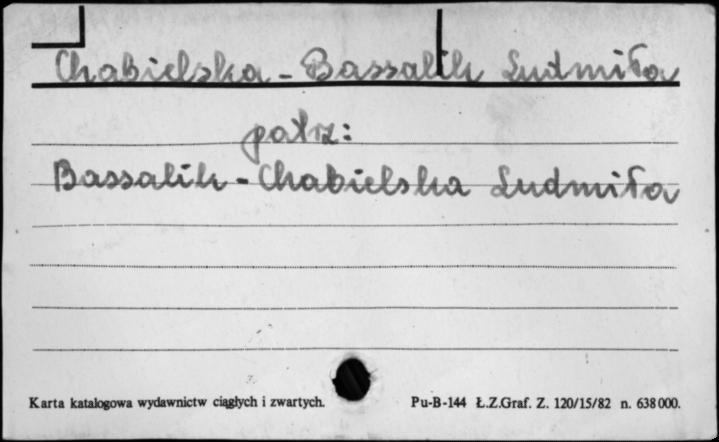 Chabielska - Bassalik Ludmiła
patrz:
Bassalik - Chabielska Ludmiła
Karta katalogowa wydawnictw ciągłych i zwartych. Pu-B-144 Ł.Z.Graf. Z. 120/15/82 n. 638000.